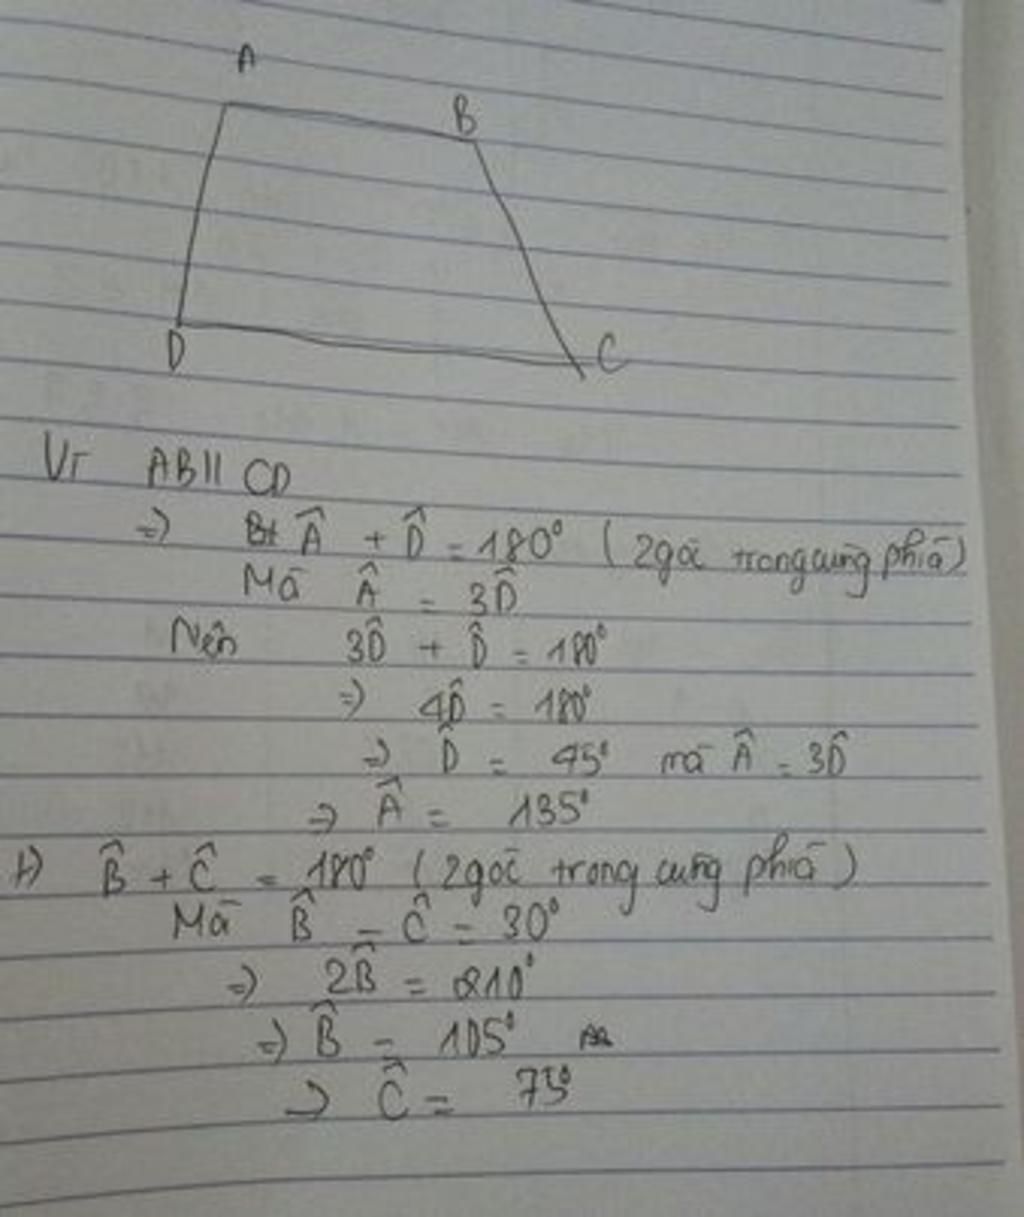 A
B
D
C
Vì AB || CD
=) Â + D̂ = 180° ( 2 góc trong cùng phía )
Mà Â = 3D̂
Nên 3D̂ + D̂ = 180°
=) 4D̂ = 180°
=) D̂ = 45° mà Â = 3D̂
=) Â = 135°
+) B̂ + Ĉ = 180° ( 2 góc trong cùng phía )
Mà B̂ - Ĉ = 30°
=) 2B̂ = 210°
=) B̂ = 105°
=) Ĉ = 75°